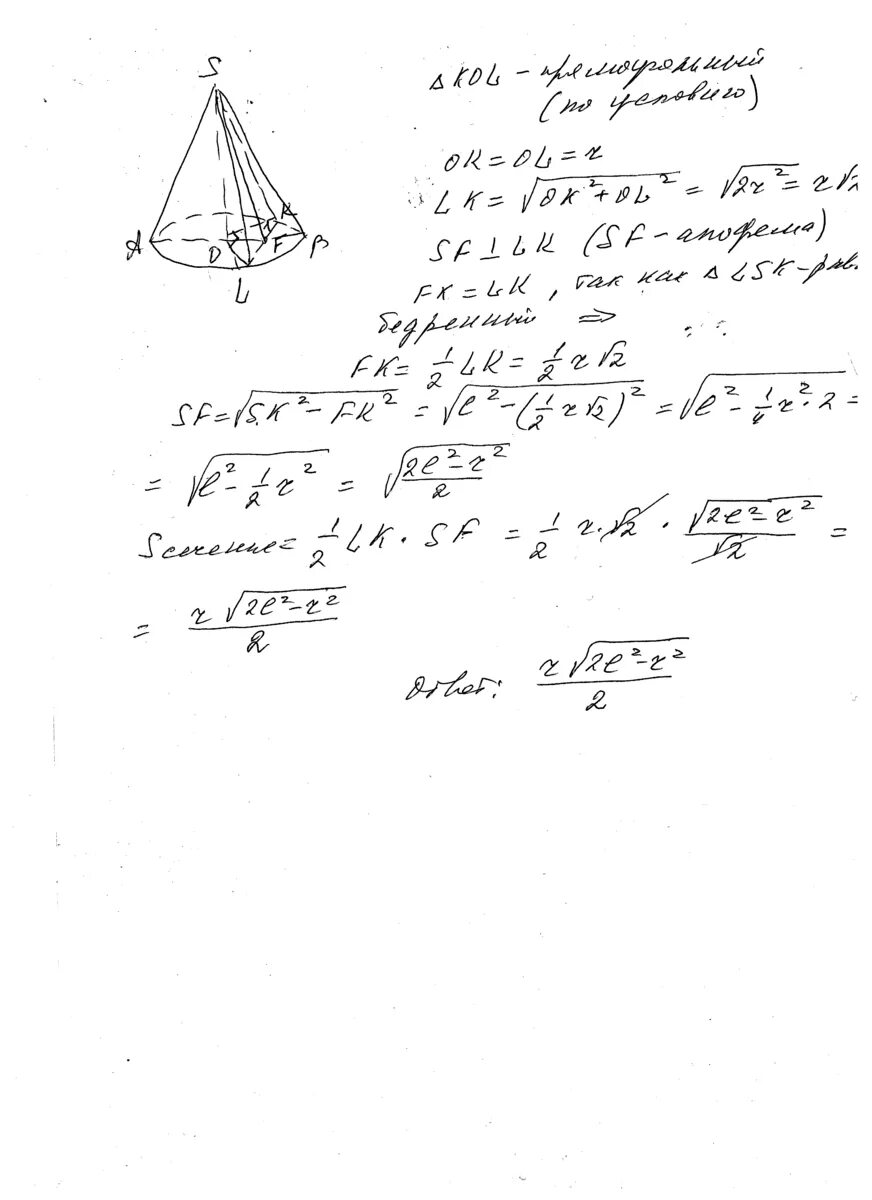 S
A
O
K
F
B
L
Δ KOL – прямоугольный
(по условию)
OK = OL = r
LK = √(OK² + OL²) = √(2r²) = r√2
SF ⊥ LK (SF – апофема)
FK = LK, так как Δ LSK – рав.
бедренный ⇒
FK = 1/2 LK = 1/2 r√2
SF = √(SK² – FK²) = √(l² – (1/2 r√2)²) = √(l² – 1/4 r² · 2) =
= √(l² – 1/2 r²) = √((2l² – r²)/2)
Sсечение = 1/2 LK · SF = 1/2 r · √2 · √(2l² – r²)/√2 =
= r√(2l² – r²)/2
Ответ: r√(2l² – r²)/2